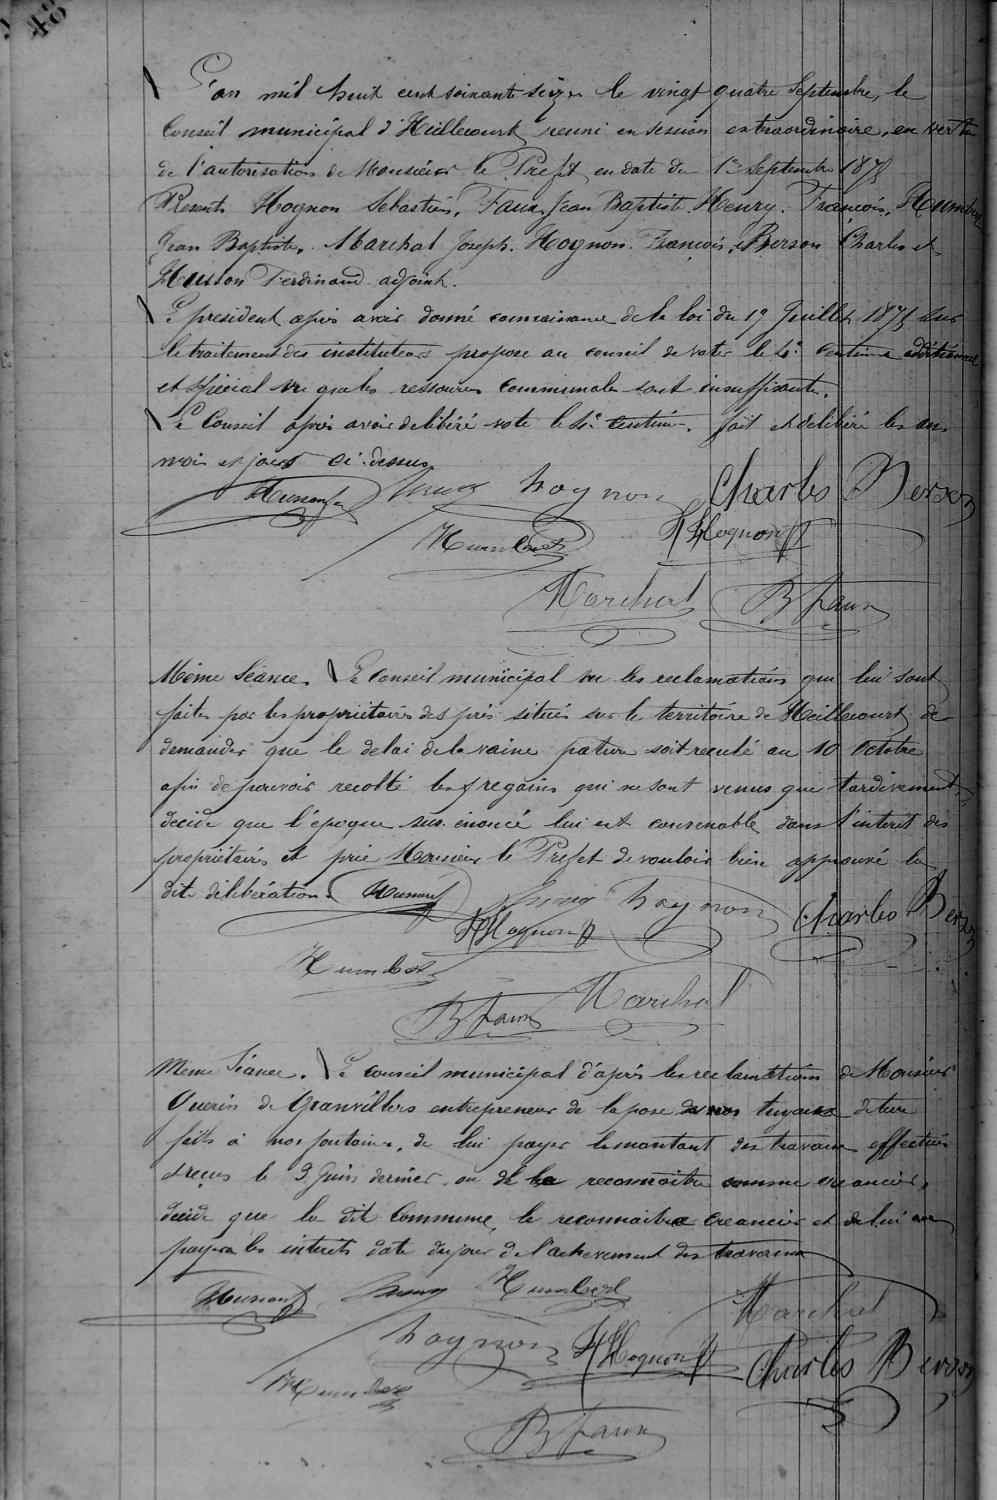 48
L'an mil huit cent soixante seize le vingt quatre Septembre, le
Conseil municipal d'Heillecourt reuni en session extraordinaire, en vertu
de l'autorisation de Monsieur le Prefet en date du Septembre 187
Presents Hognon Sebastien, Faux Jean Baptiste, Henry François, Humbert
Jean Baptiste, Marchal Joseph, Hognon François, Berson Charles et
Husson Ferdinand adjoint.
Le president apres avoir donné connaissance de la loi du 19 Juillet 1875 sur
le traitement des instituteurs propose au conseil de voter le 4e centime additionnel
et spécial vu que les ressources communales sont insuffisantes.
Le Conseil après avoir delibéré vote le 4e centime. fait et delibéré les an
mois et jours ci-dessus.
Husson Henry hognon Charles Berson
Humbert Hognon
Marchal B Faux
Même Séance. Le Conseil municipal vu les reclamations qui lui sont
faites par les propriétaires des prés situés sur le territoire de Heillecourt de
demander que le delai de la vaine pature soit reculé au 10 Octobre
afin de pouvoir recolté les regains qui ne sont venus que tardivement
decide que l'époque sus énoncé lui est convenable dans l'interet des
propriétaires et prie Monsieur le Prefet de vouloir bien approuvé la
dite délibération. Husson Henry hognon Charles Berson
Hognon
Humbert
B Faux Marchal
Meme Séance. Le conseil municipal d'après les reclamations de Monsieur
Guerin de Granvillers entrepreneur de la pose de nos tuyaux de terre
faits à nos fontaines, de lui payer le montant des travaux effectués
et reçus le 3 Juin dernier, ou de le reconnaitre comme creancier,
decide que la dit Commune le reconnaitra creancier et de lui en
payera les interets date du jour de l'achevement des travaux
Husson Henry Humbert Marchal
hognon Hognon Charles Berson
Humbert
B Faux